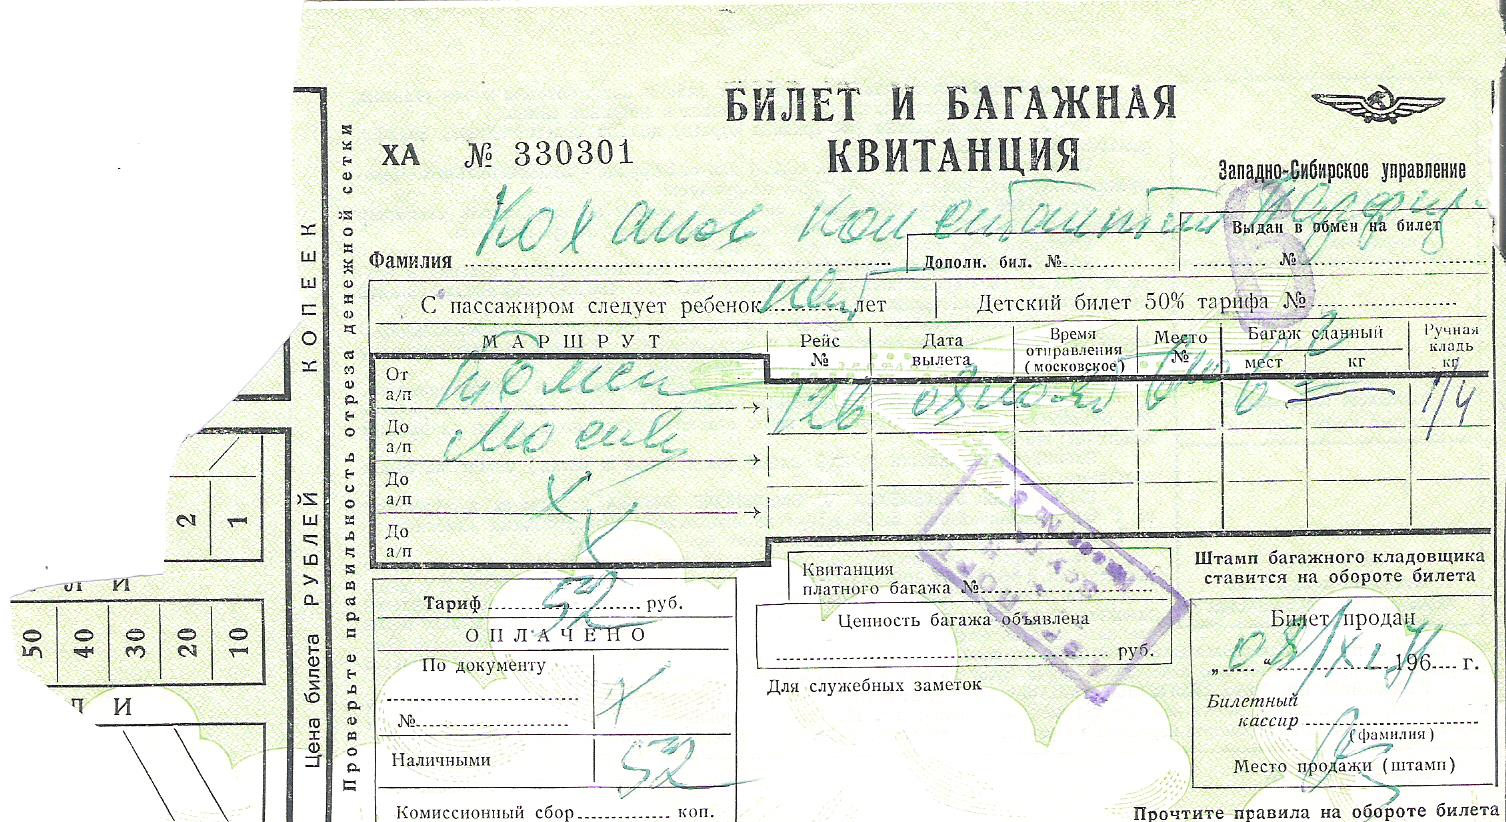 БИЛЕТ И БАГАЖНАЯ
КВИТАНЦИЯ
ХА № 330301
Западно-Сибирское управление
Коханов Константин
Фамилия
Дополн. бил. №
Выдан в обмен на билет
№
С пассажиром следует ребенок нет лет
Детский билет 50% тарифа №
МАРШРУТ
Рейс №
Дата вылета
Время отправления (московское)
Место №
Багаж сданный
мест
кг
Ручная кладь кг
От а/п
До а/п
До а/п
Х
До а/п
Х
126
Тариф 52 руб.
ОПЛАЧЕНО
По документу
№
Х
Наличными 52
Комиссионный сбор коп.
Квитанция
платного багажа №
Ценность багажа объявлена
руб.
Для служебных заметок
Штамп багажного кладовщика
ставится на обороте билета
Билет продан
„08“ XI 71 196 г.
Билетный
кассир
(фамилия)
Место продажи (штамп)
Прочтите правила на обороте билета
Проверьте правильность отреза денежной сетки
Цена билета РУБЛЕЙ КОПЕЕК
2 1
ЛИ
50 40 30 20 10
ЛИ